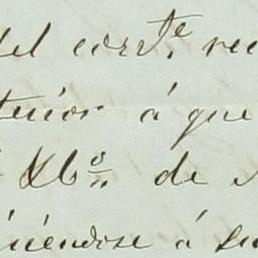 del corr.te rec
terior á que
Xb.o de
niéndose á su